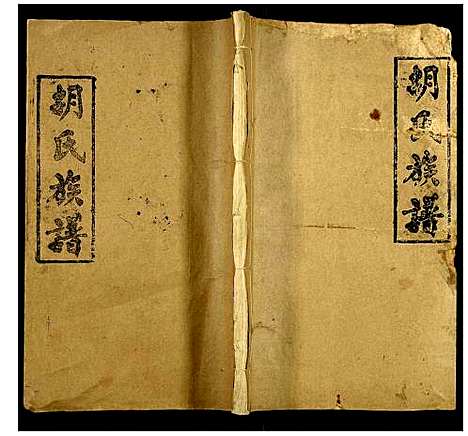 胡氏族譜
胡氏族譜